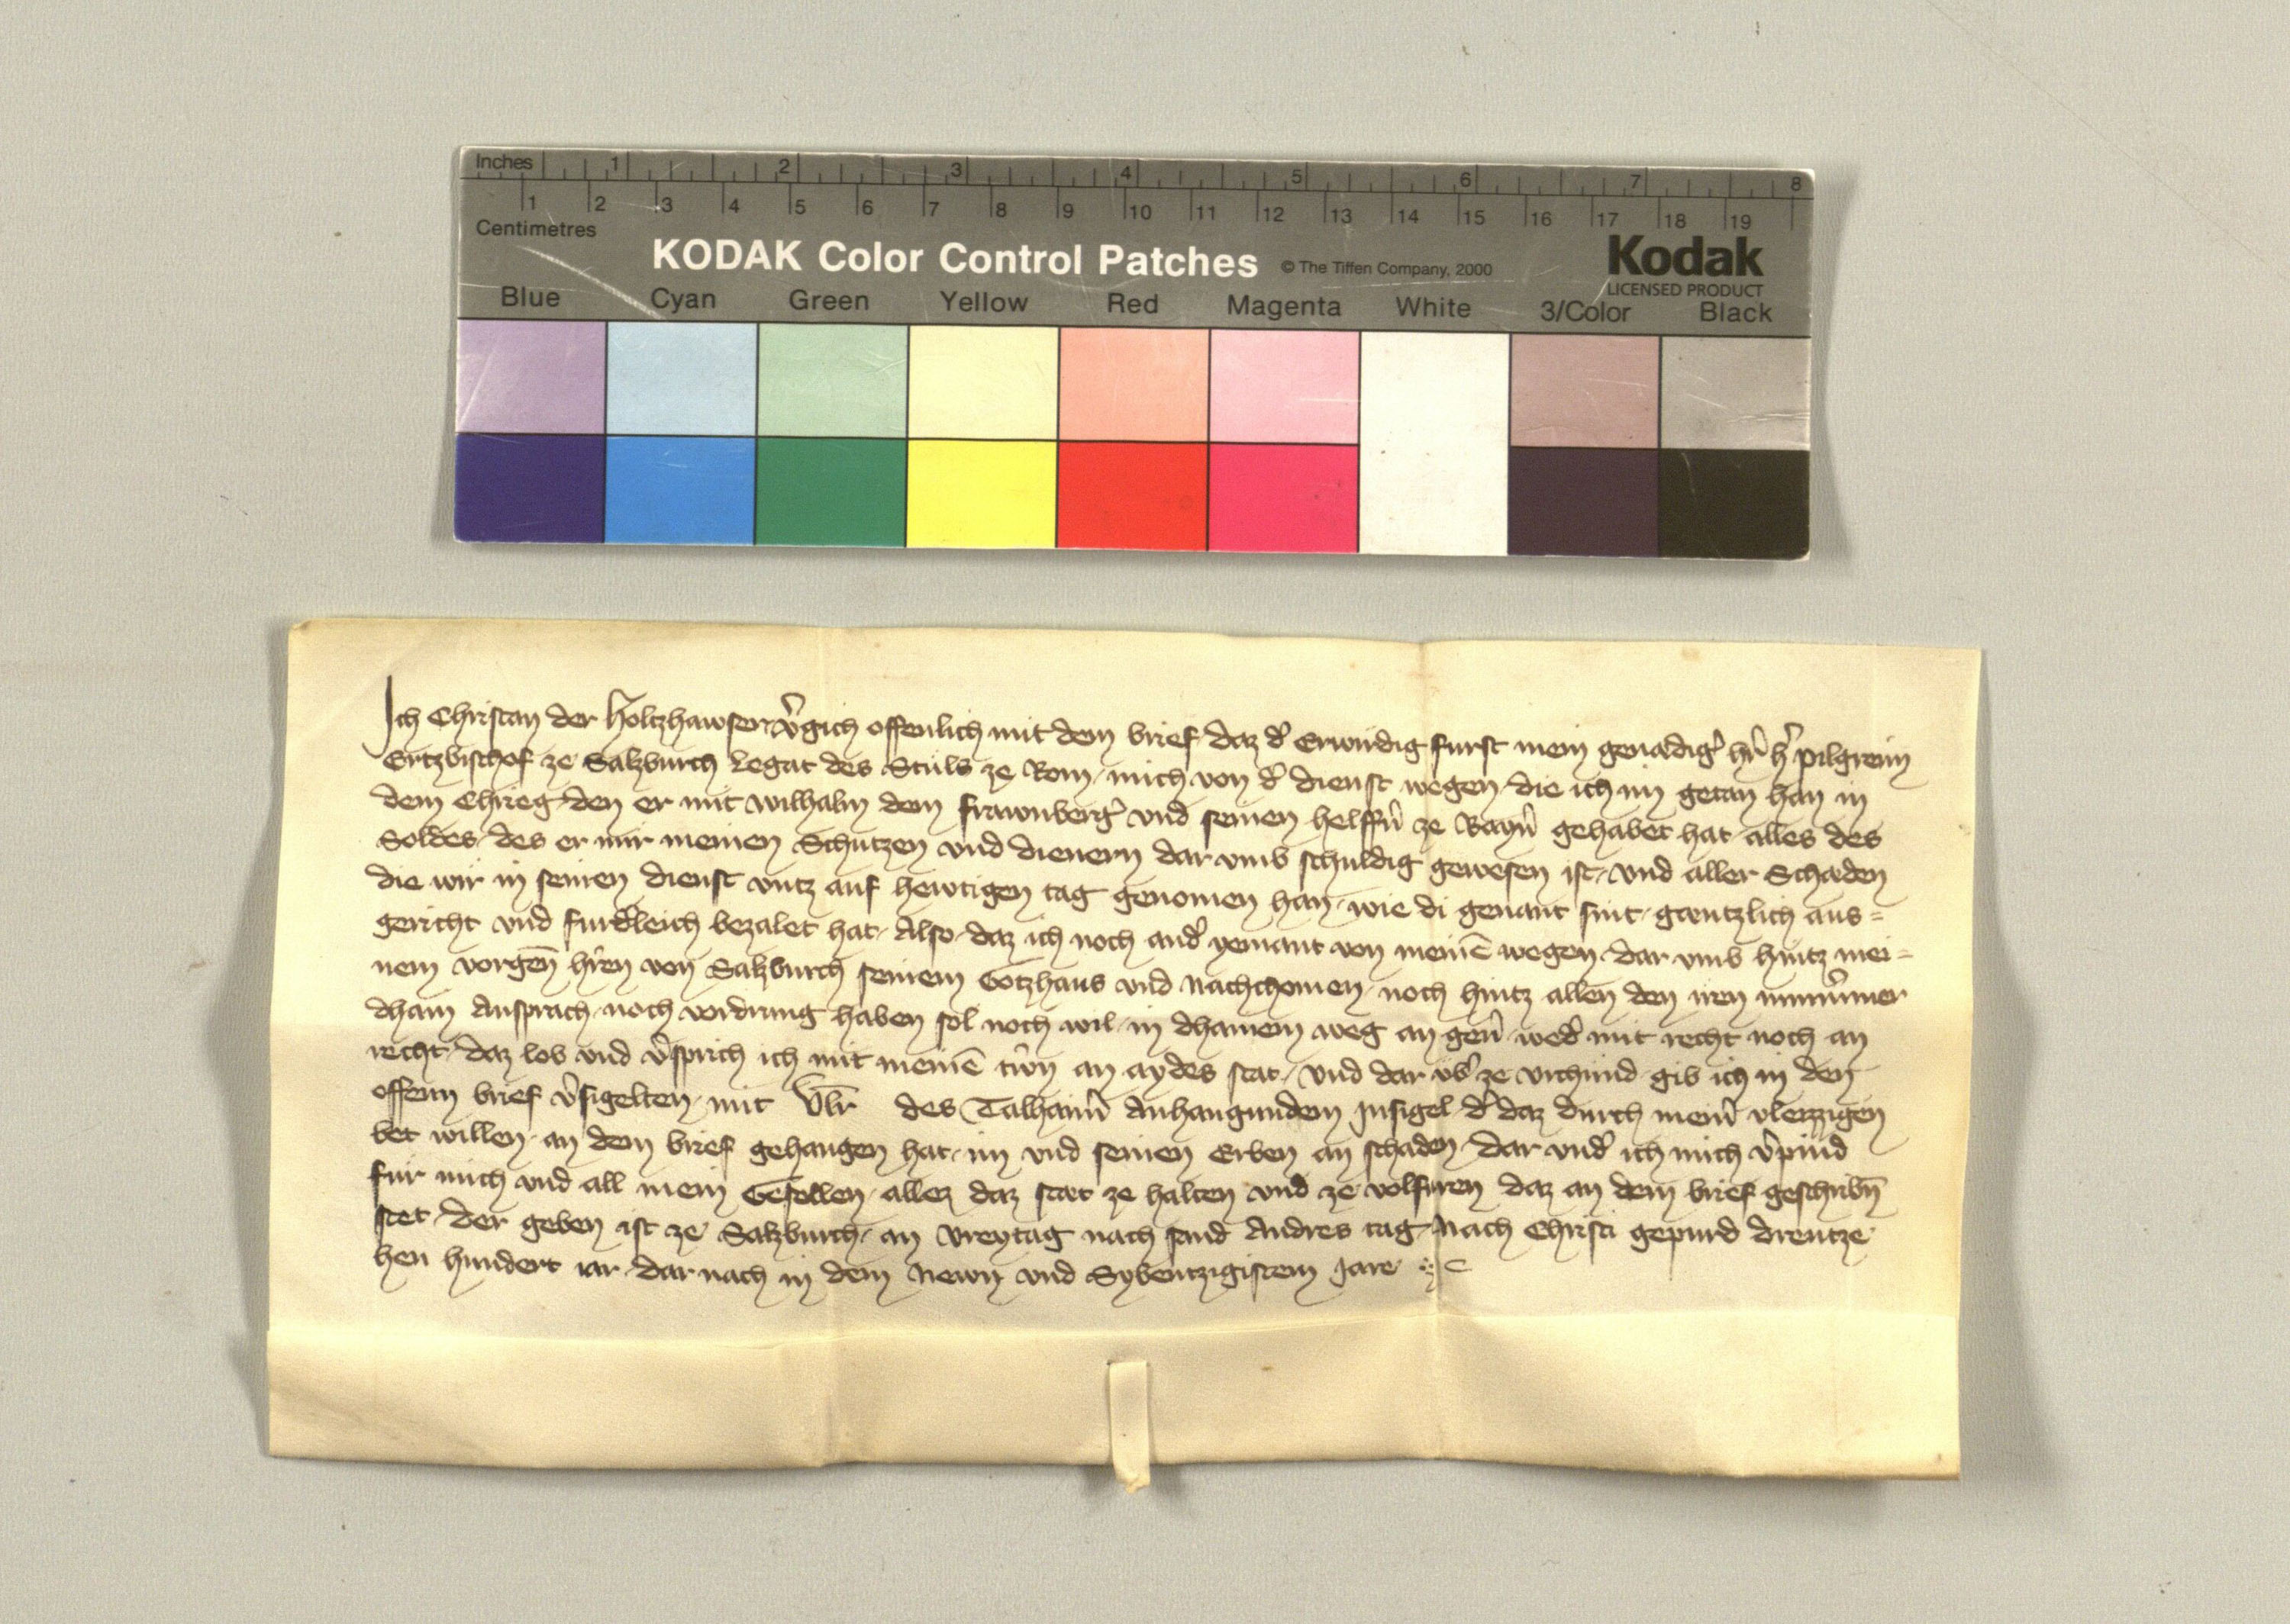 Inches 1 2 3 4 5 6 7 8
1 2 3 4 5 6 7 8 9 10 11 12 13 14 15 16 17 18 19
Centimetres
KODAK Color Control Patches © The Tiffen Company, 2000 Kodak
LICENSED PRODUCT
Blue Cyan Green Yellow Red Magenta White 3/Color Black
Ich Christan der Holtzhawser v̾gich offenlich mit dem brief daz d̾ Erwirdig furst mein genadig̾ h̾r h̾ pilgreim
Ertzbischof ze Salzburch Legat des Stuls ze Rom mich von d̾ dienst wegen die ich im getan han in
dem Chrieg den er mit wilhalm dem frawnberg̾ vnd seinen helff̾n ze Bay̾n gehabet hat alles des
Soldes des er mir meinen Schutzen vnd dienern dar vmb schuldig gewesen ist vnd aller Schaden
die wir in seinen dienst vntz auf hewtigen tag genomen han wie di genant sint gantzlich aus=
gericht vnd furd̾leich bezalet hat Also daz ich noch and̾ yemant von meinē wegen dar vmb hintz mei=
nem vorgen̄ h̾ren von Salzburch seinem Gotzhaus vnd nachchomen noch hintz allen den iren nimm̾mer
dhain Ansprach noch vordrung haben sol noch wil in dhainem weg an gen̾ wed̾ mit recht noch an
recht daz lob vnd v̾sprich ich mit meinē tr̾wn an aydes stat vnd dar vb̾ ze vrchund gib ich in den
offenn brief v̾sigelten mit Vlr̄ des Talhaim̾ Anhangundem Insigel d̾ daz durch mein̾ vleizzigen
bet willen an dem brief gehangen hat im vnd seinen Erben an schaden dar vnd̾ ich mich v̾pind
fur mich vnd all mein Gesellen allez daz stat ze halten vnd ze volfuren daz an dem brief geschribn̄
stet der geben ist ze Salzburch an vreytag nach sand Andres tag Nach Christi gepurd dreutze
hen hundert iar dar nach in dem Newn vnd Sybentzigistem Jare